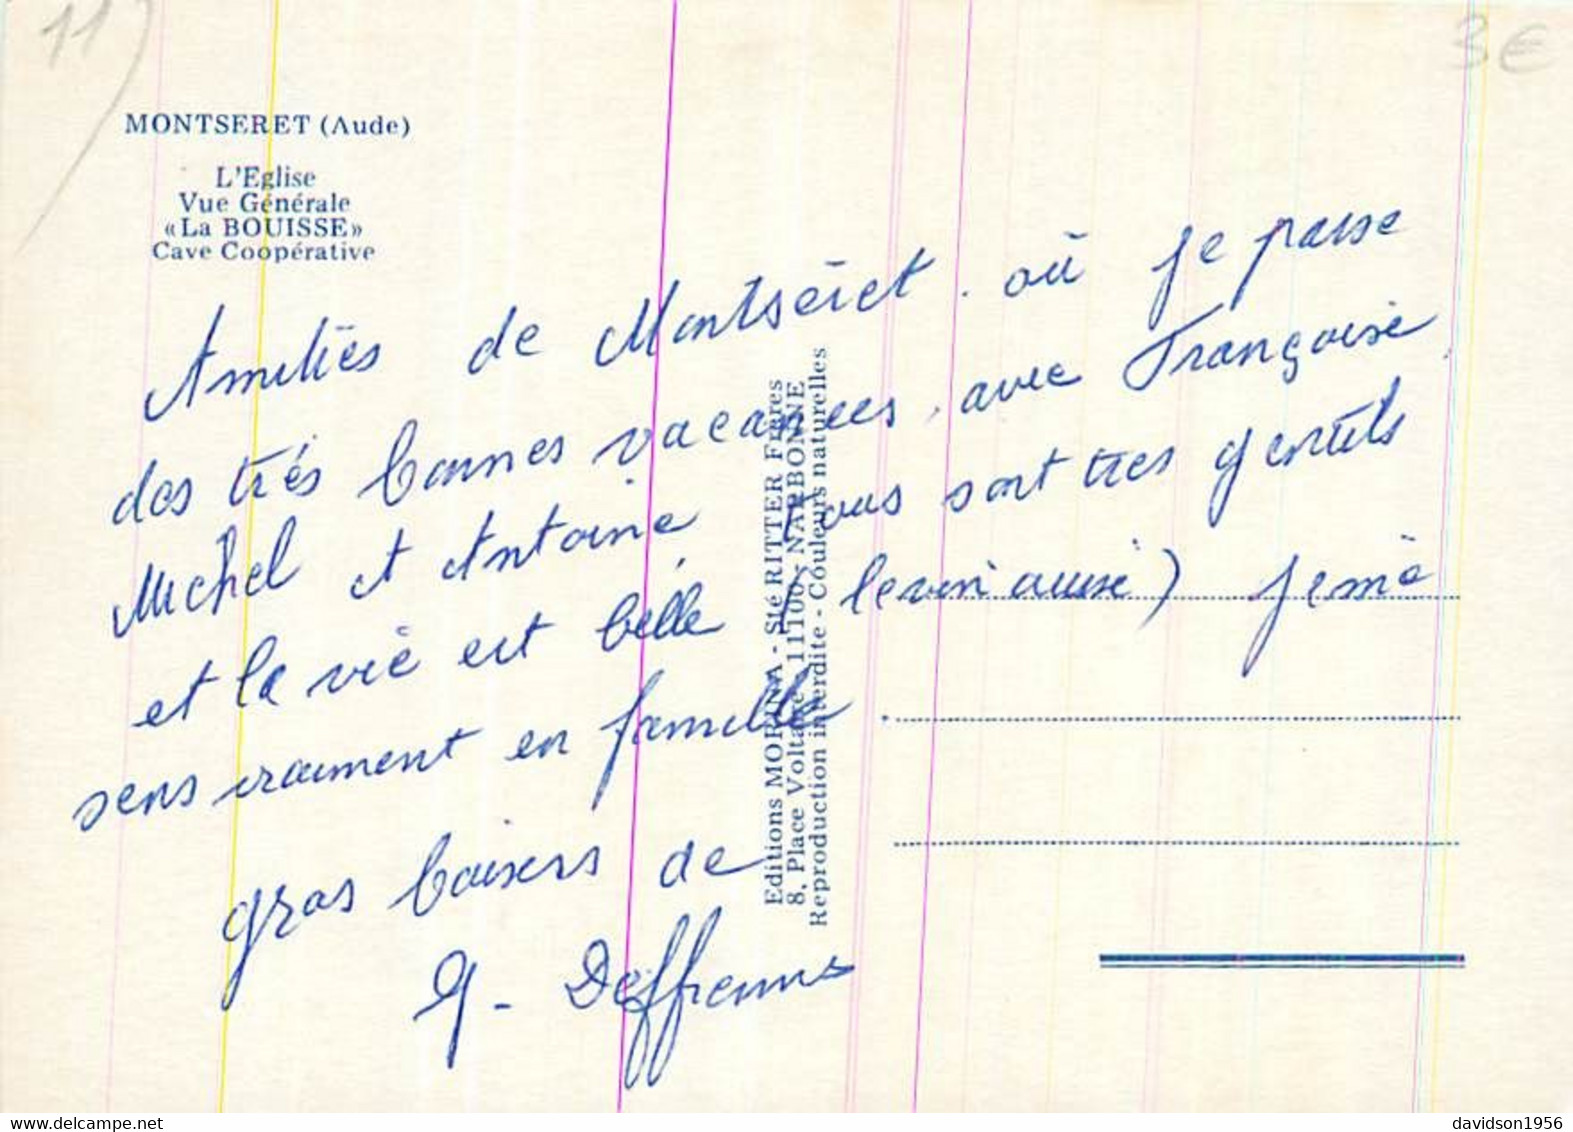 11)
3€
MONTSERET (Aude)
L'Eglise
Vue Générale
«La BOUISSE»
Cave Coopérative
Amitiés de Montséret. où je passe
des très bonnes vacances, avec Françoise,
Michel et Antoine, tous sont très gentils
et la vie est belle (le vin aussi) je me
sens vraiment en famille
gros baisers de
G. Deffrenns
Editions MORINA - Sté RITTER Frères
8, Place Voltaire, 11100 - NARBONNE
Reproduction interdite - Couleurs naturelles
davidson1956